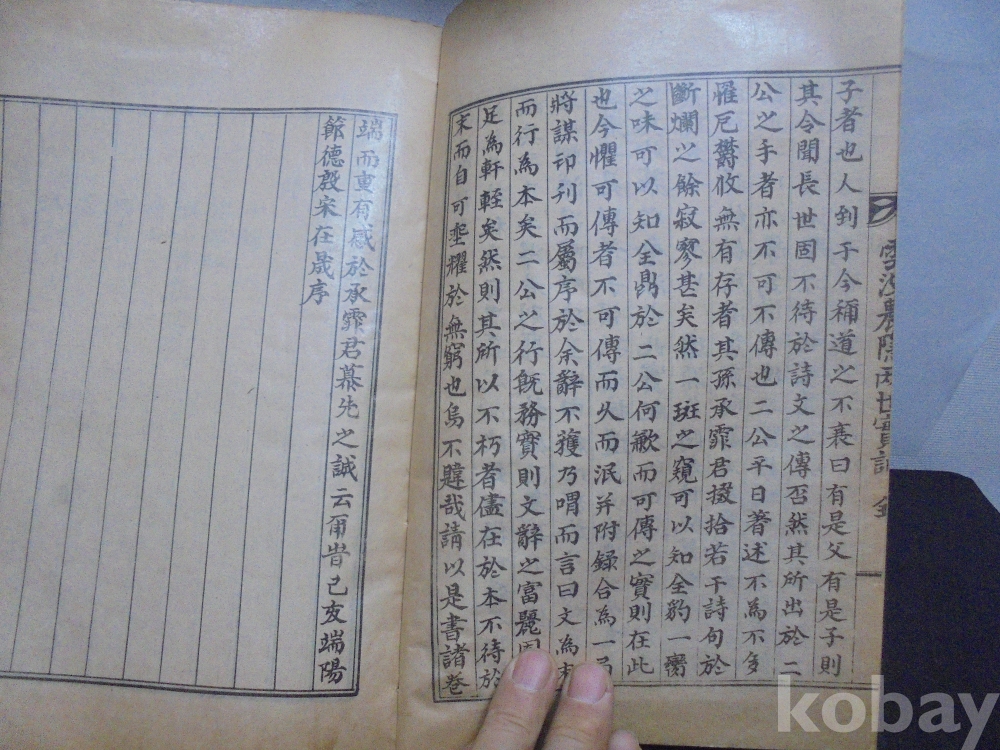 雲汕農隱兩世實記 全
子者也人到于今稱道之不衰曰有是父有是子則
其令聞長世固不待於詩文之傳否然其所出於二
公之手者亦不可不傳也二公平日著述不爲不多
罹厄欝攸無有存者其孫承霏君掇拾若干詩句於
斷爛之餘寂寥甚矣然一斑之窺可以知全豹一臠
之味可以知全鼎於二公何歉而可傳之實則在此
也今懼可傳者不可傳而久而泯并附錄合爲一
將謀印刊而屬序於余辭不獲乃喟而言曰文爲
而行爲本矣二公之行旣務實則文辭之富麗
足爲軒輊矣然則其所以不朽者儘在於本不待於
末而自可垂耀於無窮也烏不韙哉請以是書諸卷
端而重有感於承霏君慕先之誠云爾旹己亥端陽
節德殷宋在晟序
kobay